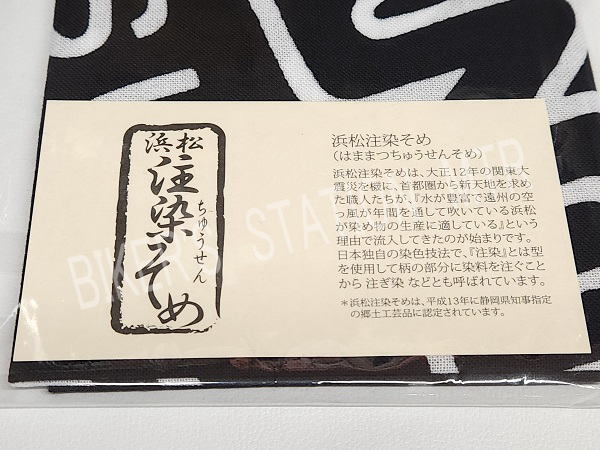 浜松
注染そめ
ちゅうせん
浜松注染そめ
(はままつちゅうせんそめ)
浜松注染そめは、大正12年の関東大
震災を機に、首都圏から新天地を求め
た職人たちが、『水が豊富で遠州の空
っ風が年間を通して吹いている浜松
が染め物の生産に適している』という
理由で流入してきたのが始まりです。
日本独自の染色技法で、『注染』とは型
を使用して柄の部分に染料を注ぐこと
から 注ぎ染 などとも呼ばれています。
*浜松注染そめは、平成13年に静岡県知事指定
の郷土工芸品に認定されています。